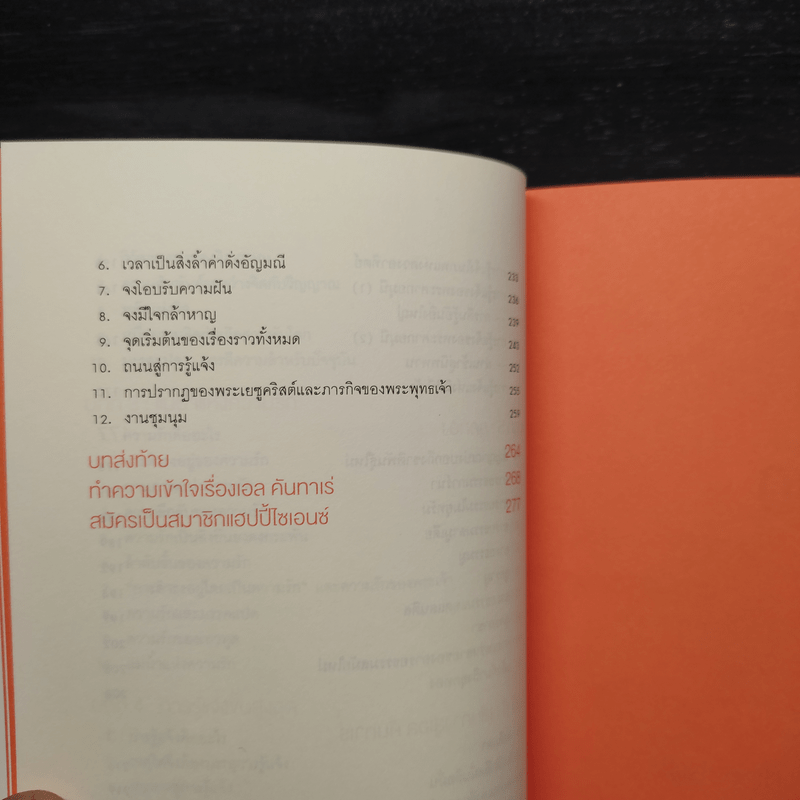 6. เวลาเป็นสิ่งล้ำค่าดั่งอัญมณี 233
7. จงโอบรับความฝัน 236
8. จงมีใจกล้าหาญ 239
9. จุดเริ่มต้นของเรื่องราวทั้งหมด 245
10. ถนนสู่การรู้แจ้ง 252
11. การปรากฏของพระเยซูคริสต์และภารกิจของพระพุทธเจ้า 255
12. งานชุมนุม 259
บทส่งท้าย 264
ทำความเข้าใจเรื่องเอล คันทาเร่ 268
สมัครเป็นสมาชิกแฮปปี้ไซเอนซ์ 277